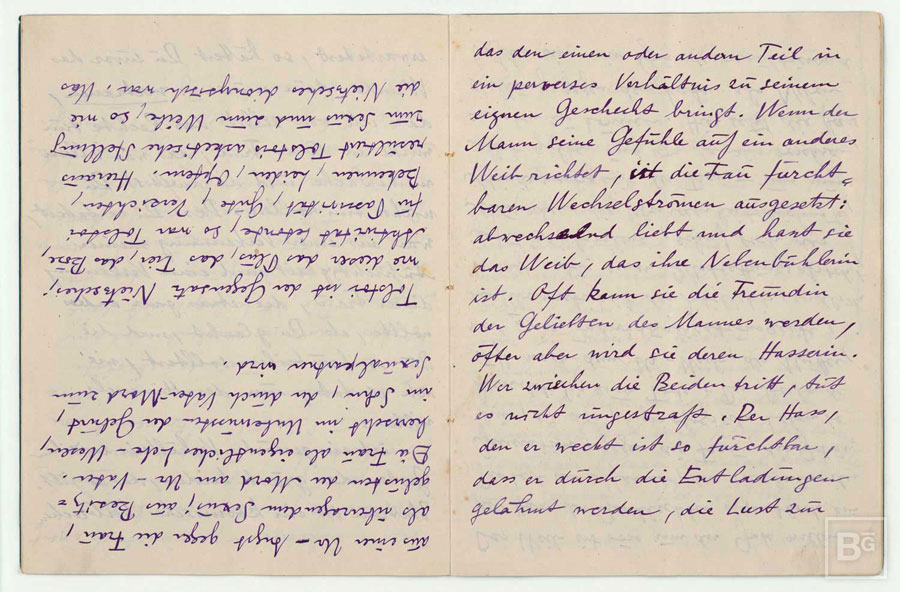 aus einer Ur-Angst gegen die Frau,
als überragendem Sexus; aus Besitz=
gelüsten der Mord am Ur-Vater.
Die Frau als eigentliches Lebe-Wesen,
herrscht im Unbewussten der Geburt,
im Sohn, der durch Vater-Mord zum
Sexualpartner wird.
Tolstoi ist der Gegensatz Nietzsches;
wie dieser das Plus, das Tier, das Böse,
Aktivität betonte, so war Tolstoi
für Passivität, Güte, Verzichten,
Bekennen, Leiden, Opfern. Hieraus
resultiert Tolstois asketische Stellung
zum Sexus und zum Weibe, so wie
die Nietzsches dionysisch war. Was
das den einen oder andern Teil in
ein perverses Verhältnis zu seinem
eignen Geschecht bringt. Wenn der
Mann seine Gefühle auf ein anderes
Weib richtet, ist die Frau furcht=
baren Wechselströmen ausgesetzt:
abwechselnd liebt und hasst sie
das Weib, das ihre Nebenbühlerin
ist. Oft kann sie die Freundin
der Geliebten des Mannes werden,
öfter aber wird sie deren Hasserin.
Wer zwischen die Beiden tritt, tut
es nicht ungestraft. Der Hass,
den er weckt ist so furchtbar,
dass er durch die Entladungen
gelähmt werden, die Lust zur
BG